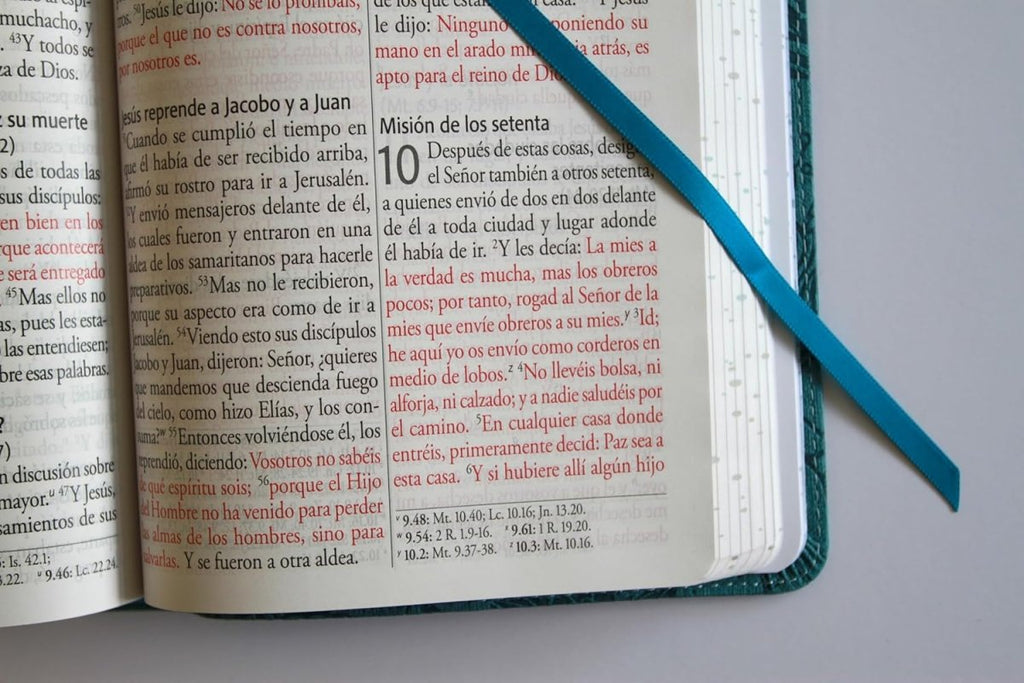 muchacho, y
43Y todos se
za de Dios.
su muerte
2)
s de todas las
sus discípulos:
en bien en los
rque acontecerá
e será entregado
45Mas ellos no
as, pues les esta-
las entendiesen;
bre esas palabras.
?
7)
n discusión sobre
mayor.u 47Y Jesús,
samientos de sus
: Is. 42.1;
3.22. u 9.46: Lc. 22.24.
50Jesús le dijo: No se lo prohibáis,
porque el que no es contra nosotros,
por nosotros es.
Jesús reprende a Jacobo y a Juan
Cuando se cumplió el tiempo en
que él había de ser recibido arriba,
afirmó su rostro para ir a Jerusalén.
Y envió mensajeros delante de él,
los cuales fueron y entraron en una
aldea de los samaritanos para hacerle
preparativos. 53Mas no le recibieron,
porque su aspecto era como de ir a
Jerusalén. 54Viendo esto sus discípulos
Jacobo y Juan, dijeron: Señor, ¿quieres
que mandemos que descienda fuego
del cielo, como hizo Elías, y los con-
suma?w 55Entonces volviéndose él, los
reprendió, diciendo: Vosotros no sabéis
de qué espíritu sois; 56porque el Hijo
del Hombre no ha venido para perder
las almas de los hombres, sino para
salvarlas. Y se fueron a otra aldea.
de los que están casa. Y Jesús
le dijo: Ninguno poniendo su
mano en el arado mi atrás, es
apto para el reino de Dio
Misión de los setenta
10 Después de estas cosas, desig
el Señor también a otros setenta,
a quienes envió de dos en dos delante
de él a toda ciudad y lugar adonde
él había de ir. 2Y les decía: La mies a
la verdad es mucha, mas los obreros
pocos; por tanto, rogad al Señor de la
mies que envíe obreros a su mies.y 3Id;
he aquí yo os envío como corderos en
medio de lobos.z 4No llevéis bolsa, ni
alforja, ni calzado; y a nadie saludéis por
el camino. 5En cualquier casa donde
entréis, primeramente decid: Paz sea a
esta casa. 6Y si hubiere allí algún hijo
v 9.48: Mt. 10.40; Lc. 10.16; Jn. 13.20.
w 9.54: 2 R. 1.9-16. x 9.61: 1 R. 19.20.
y 10.2: Mt. 9.37-38. z 10.3: Mt. 10.16.